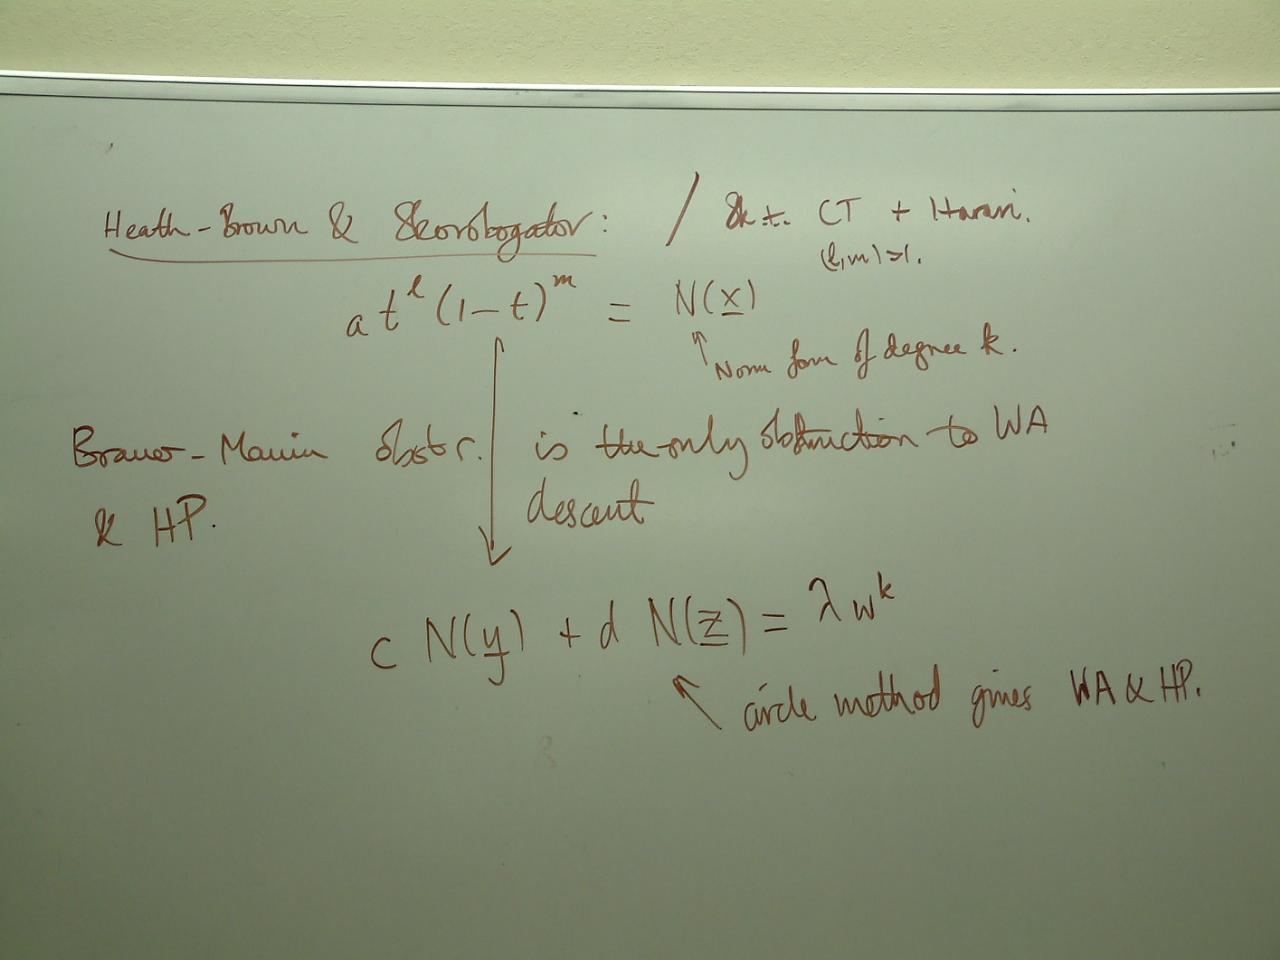 Heath-Brown & Skorobogatov: / Sk + CT + Harari.
(l,m)=1.
a t^l (1-t)^m = N(x)
↑ Norm form of degree k.
Brauer-Manin obstr. is the only obstruction to WA
& HP. descent
c N(y) + d N(z) = λ w^k
circle method gives WA & HP.